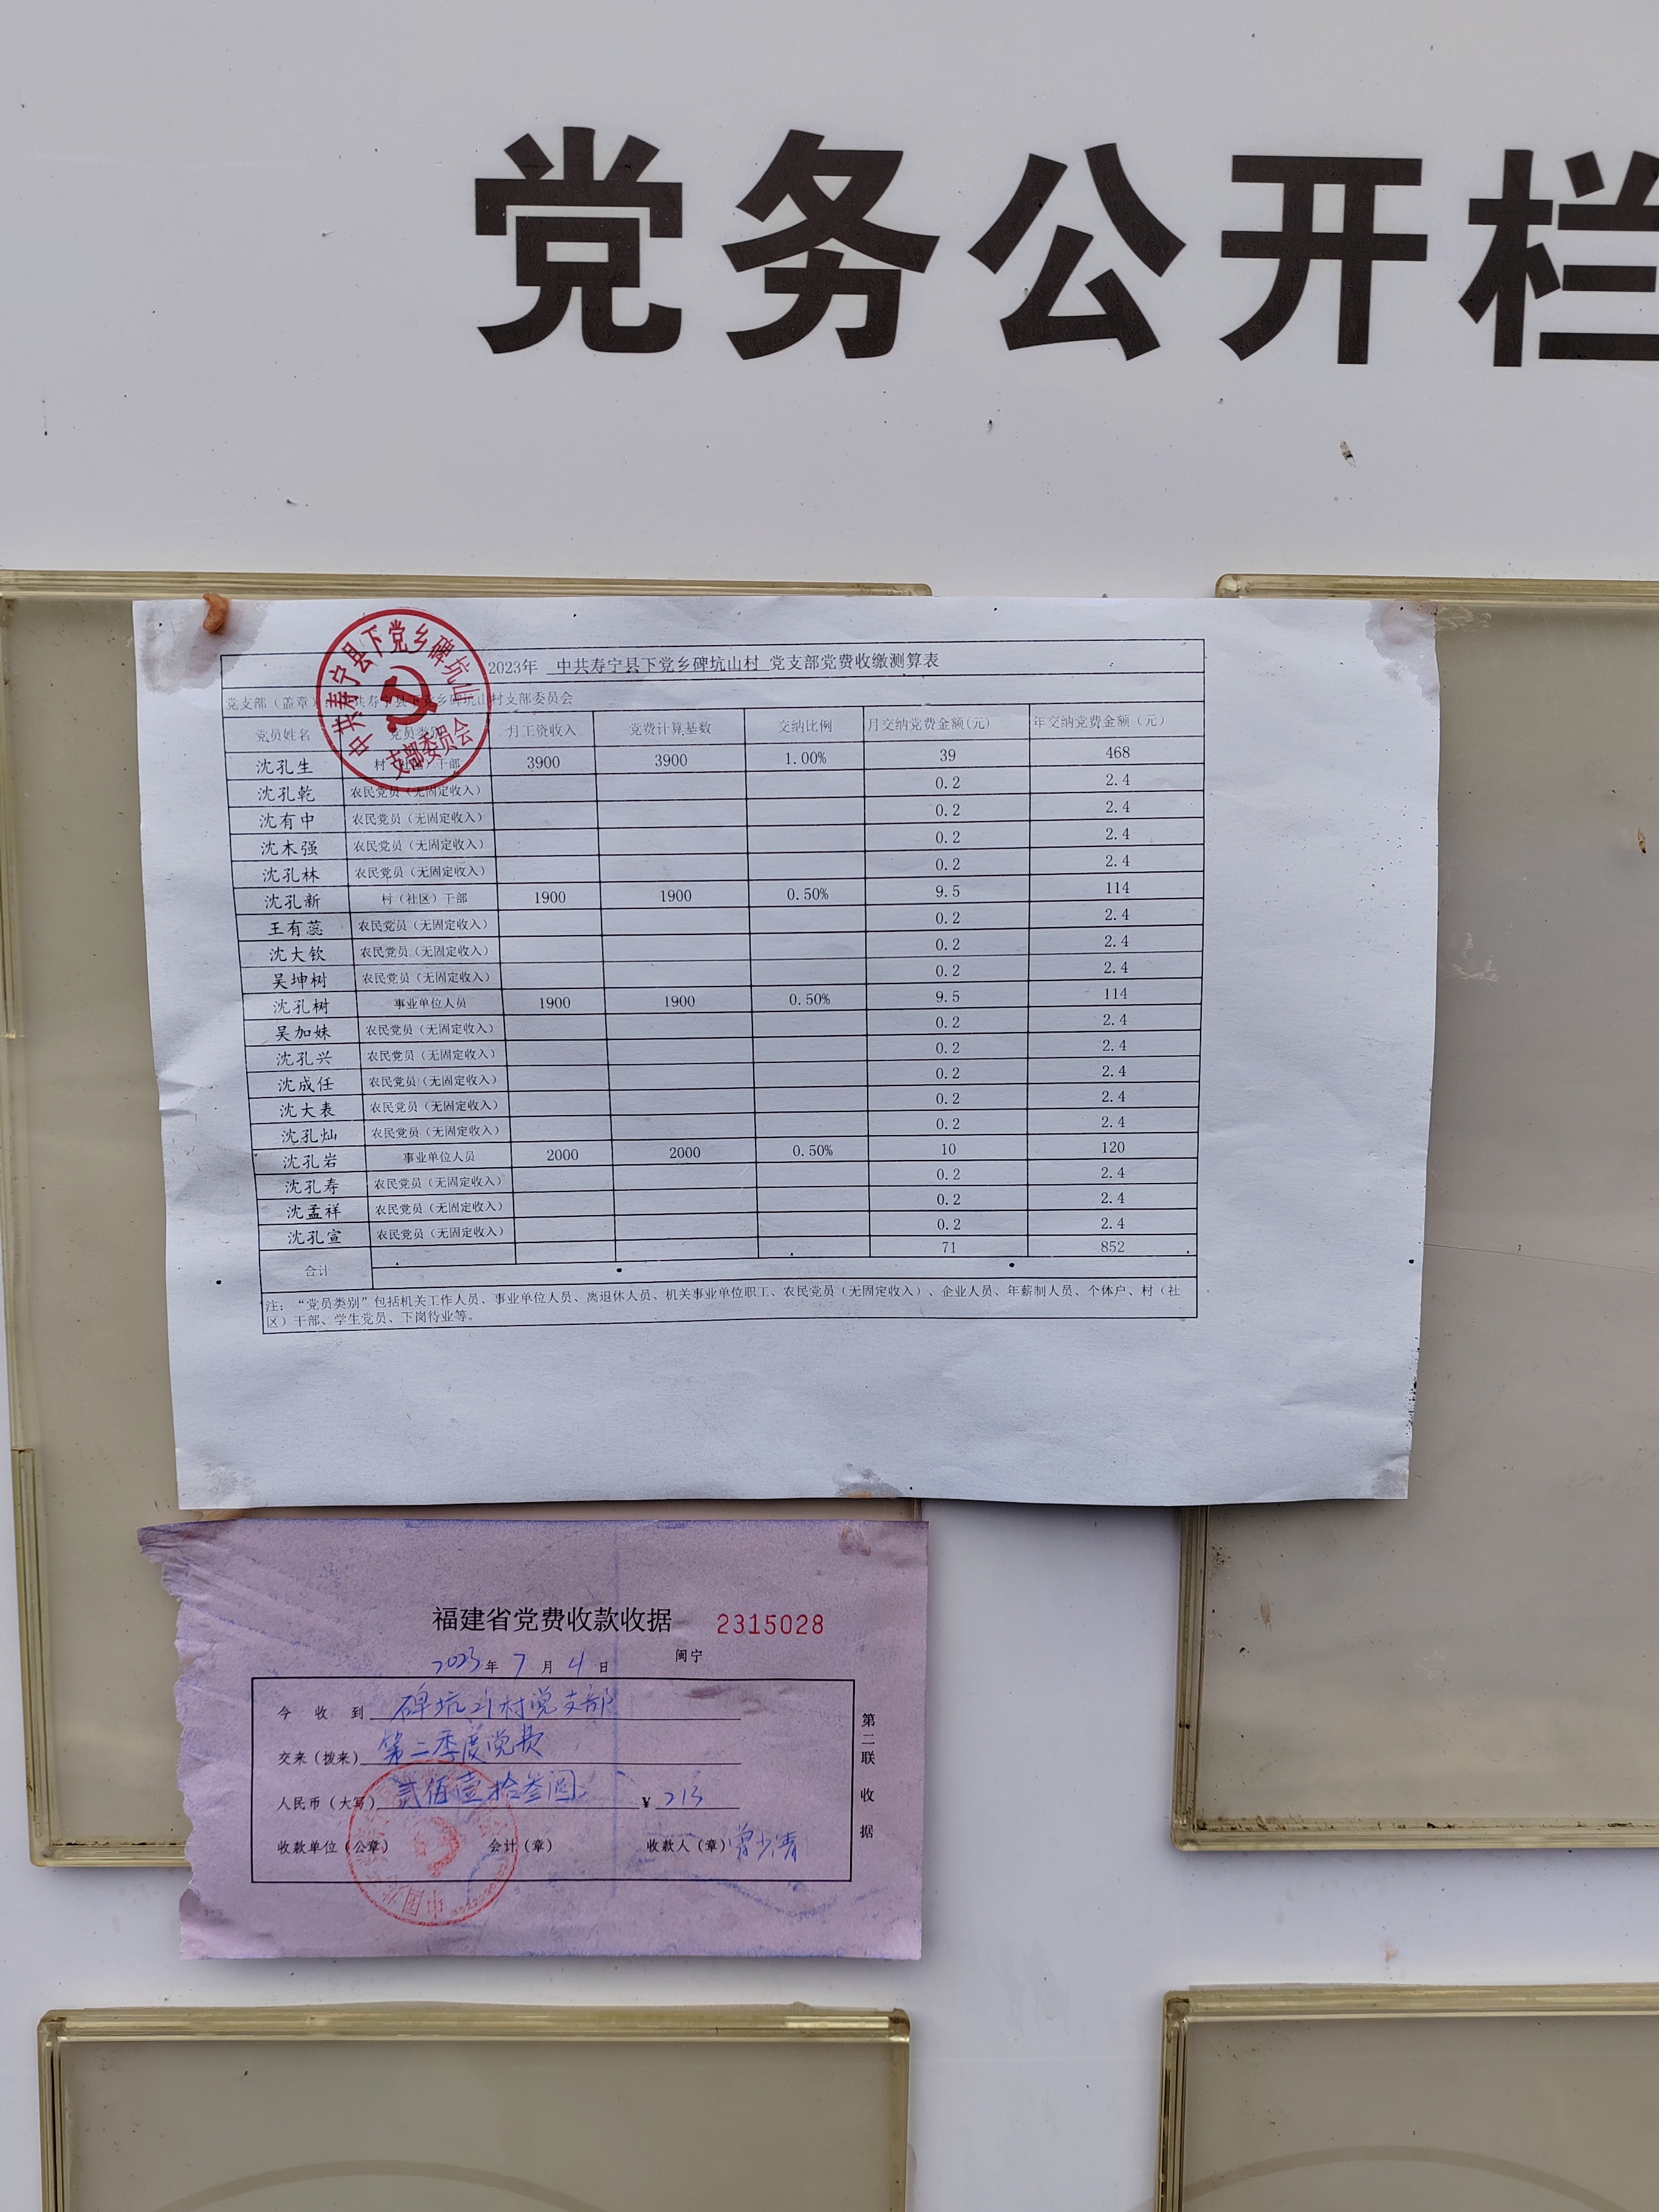 党务公开栏
2023年 中共寿宁县下党乡碑坑山村 党支部党费收缴测算表
党支部（盖章）：中共寿宁县下党乡碑坑山村支部委员会
中共寿宁县下党乡碑坑山
支部委员会
党员姓名 党员类别 月工资收入 党费计算基数 交纳比例 月交纳党费金额(元) 年交纳党费金额（元）
沈孔生 村（社区）干部 3900 3900 1.00% 39 468
沈孔乾 农民党员（无固定收入） 0.2 2.4
沈有中 农民党员（无固定收入） 0.2 2.4
沈木强 农民党员（无固定收入） 0.2 2.4
沈孔林 农民党员（无固定收入） 0.2 2.4
沈孔新 村（社区）干部 1900 1900 0.50% 9.5 114
王有蕊 农民党员（无固定收入） 0.2 2.4
沈大钦 农民党员（无固定收入） 0.2 2.4
吴坤树 农民党员（无固定收入） 0.2 2.4
沈孔树 事业单位人员 1900 1900 0.50% 9.5 114
吴加妹 农民党员（无固定收入） 0.2 2.4
沈孔兴 农民党员（无固定收入） 0.2 2.4
沈成任 农民党员（无固定收入） 0.2 2.4
沈大表 农民党员（无固定收入） 0.2 2.4
沈孔灿 农民党员（无固定收入） 0.2 2.4
沈孔岩 事业单位人员 2000 2000 0.50% 10 120
沈孔寿 农民党员（无固定收入） 0.2 2.4
沈孟祥 农民党员（无固定收入） 0.2 2.4
沈孔宣 农民党员（无固定收入） 0.2 2.4
合计 71 852
注：“党员类别”包括机关工作人员、事业单位人员、离退休人员、机关事业单位职工、农民党员（无固定收入）、企业人员、年薪制人员、个体户、村（社
区）干部、学生党员、下岗待业等。
福建省党费收款收据 2315028
2023年7月4日 闽宁
今收到 碑坑山村党支部
交来（拨来） 第二季度党费
人民币（大写） 贰佰壹拾叁圆 ¥ 213
收款单位（公章） 会计（章） 收款人（章）曾少清
第二联 收据